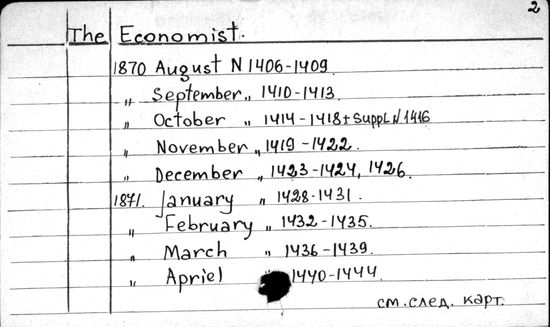 2
The Economist.
1870 August N 1406-1409.
„ September „ 1410-1413.
„ October „ 1414-1418 + Suppl. N 1416
„ November „ 1419-1422.
„ December „ 1423-1424, 1426.
1871. January „ 1428-1431.
„ February „ 1432-1435.
„ March „ 1436-1439.
„ Apriel 1440-1444.
см. след. карт.